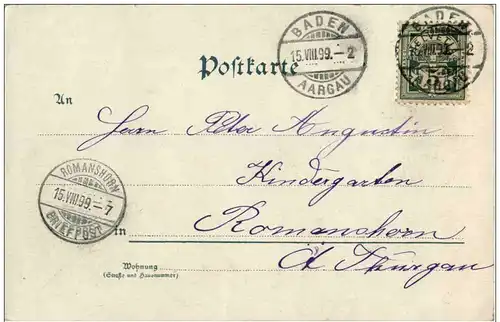 BADEN
15.VIII.99.–2
AARGAU
BADEN
AARGAU
Postkarte
An
Herrn Peter Augustin
Kindergarten
ROMANSHORN
15.VIII.99.–7
BRIEFPOST
in Romanshorn
Ct. Thurgau
Wohnung
(Straße und Hausnummer)